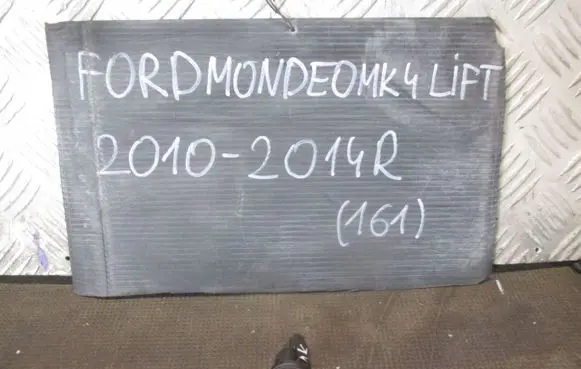 FORD MONDEO MK4 LiFT
2010-2014R
(161)